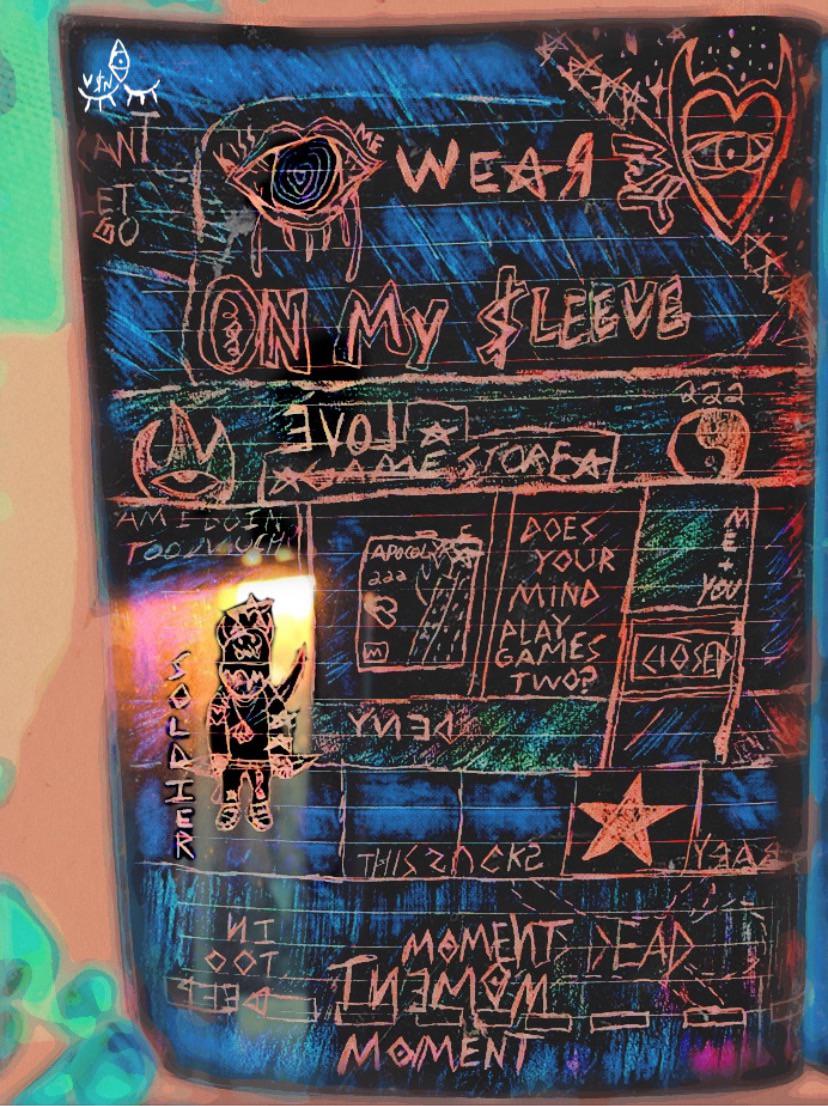 V$N
CANT
LET
GO
ME
WEAR MY
ON MY $LEEVE
222
LOVE
GAME STORE
AM I DOIN
TOO MUCH
APOCOLYPSE
222
M
DOES
YOUR
MIND
PLAY
GAMES
TWO?
ME + YOU
CLOSED
SOLDIER
DENY
THIS SUCKS
YEAR
IN
TOO
DEEP
MOMENT DEAD
MOMENT
MOMENT